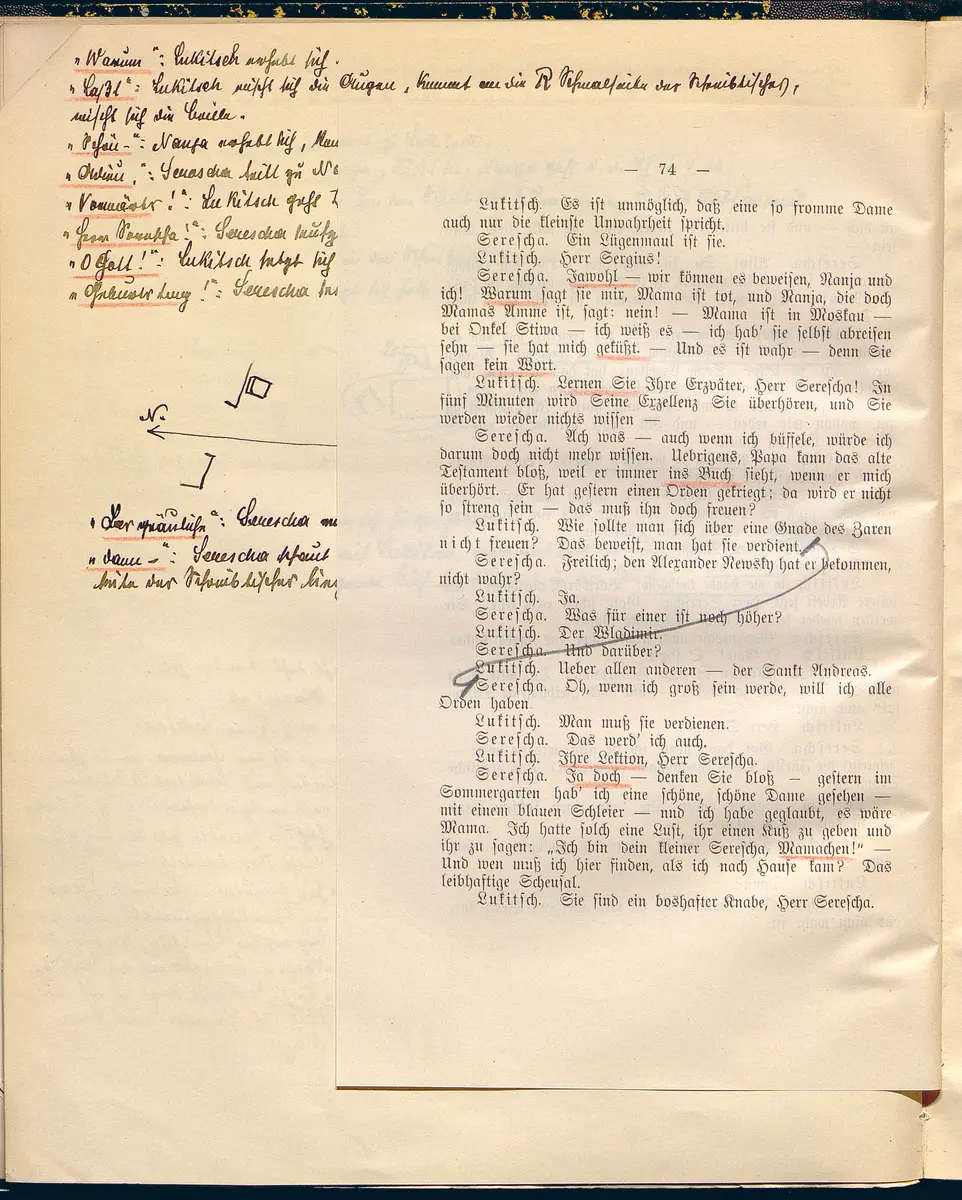 "Warum": Lukitsch erhebt sich.
"Laßt": Lukitsch wischt sich die Augen, kommt an die R Schmalseite des Schreibtisches,
wischt sich die Brille.
"Schön-": Nanja erhebt sich,
"Adieu,": Serescha tritt zu
"Vorwärts!": Lukitsch geht
"Herr Serescha!": Serescha
"O Gott!": Lukitsch setzt sich
"Geburtstag!": Serescha
N.
Serescha
"dann-": Serescha schaut
seite des Schreibtisches
— 74 —
Lukitsch. Es ist unmöglich, daß eine so fromme Dame
auch nur die kleinste Unwahrheit spricht.
Serescha. Ein Lügenmaul ist sie.
Lukitsch. Herr Sergius!
Serescha. Jawohl — wir können es beweisen, Nanja und
ich! Warum sagt sie mir, Mama ist tot, und Nanja, die doch
Mamas Amme ist, sagt: nein! — Mama ist in Moskau —
bei Onkel Stiwa — ich weiß es — ich hab' sie selbst abreisen
sehn — sie hat mich geküßt. — Und es ist wahr — denn Sie
sagen kein Wort.
Lukitsch. Lernen Sie Ihre Erzväter, Herr Serescha! In
fünf Minuten wird Seine Exzellenz Sie überhören, und Sie
werden wieder nichts wissen —
Serescha. Ach was — auch wenn ich büffele, würde ich
darum doch nicht mehr wissen. Uebrigens, Papa kann das alte
Testament bloß, weil er immer ins Buch sieht, wenn er mich
überhört. Er hat gestern einen Orden gekriegt; da wird er nicht
so streng sein — das muß ihn doch freuen?
Lukitsch. Wie sollte man sich über eine Gnade des Zaren
nicht freuen? Das beweist, man hat sie verdient.
Serescha. Freilich; den Alexander Newsky hat er bekommen,
nicht wahr?
Lukitsch. Ja.
Serescha. Was für einer ist noch höher?
Lukitsch. Der Wladimir.
Serescha. Und darüber?
Lukitsch. Ueber allen anderen — der Sankt Andreas.
Serescha. Oh, wenn ich groß sein werde, will ich alle
Orden haben
Lukitsch. Man muß sie verdienen.
Serescha. Das werd' ich auch.
Lukitsch. Ihre Lektion, Herr Serescha.
Serescha. Ja doch — denken Sie bloß – gestern im
Sommergarten hab' ich eine schöne, schöne Dame gesehen —
mit einem blauen Schleier — und ich habe geglaubt, es wäre
Mama. Ich hatte solch eine Lust, ihr einen Kuß zu geben und
ihr zu sagen: „Ich bin dein kleiner Serescha, Mamachen!“ —
Und wen muß ich hier finden, als ich nach Hause kam? Das
leibhaftige Scheusal.
Lukitsch. Sie sind ein boshafter Knabe, Herr Serescha.